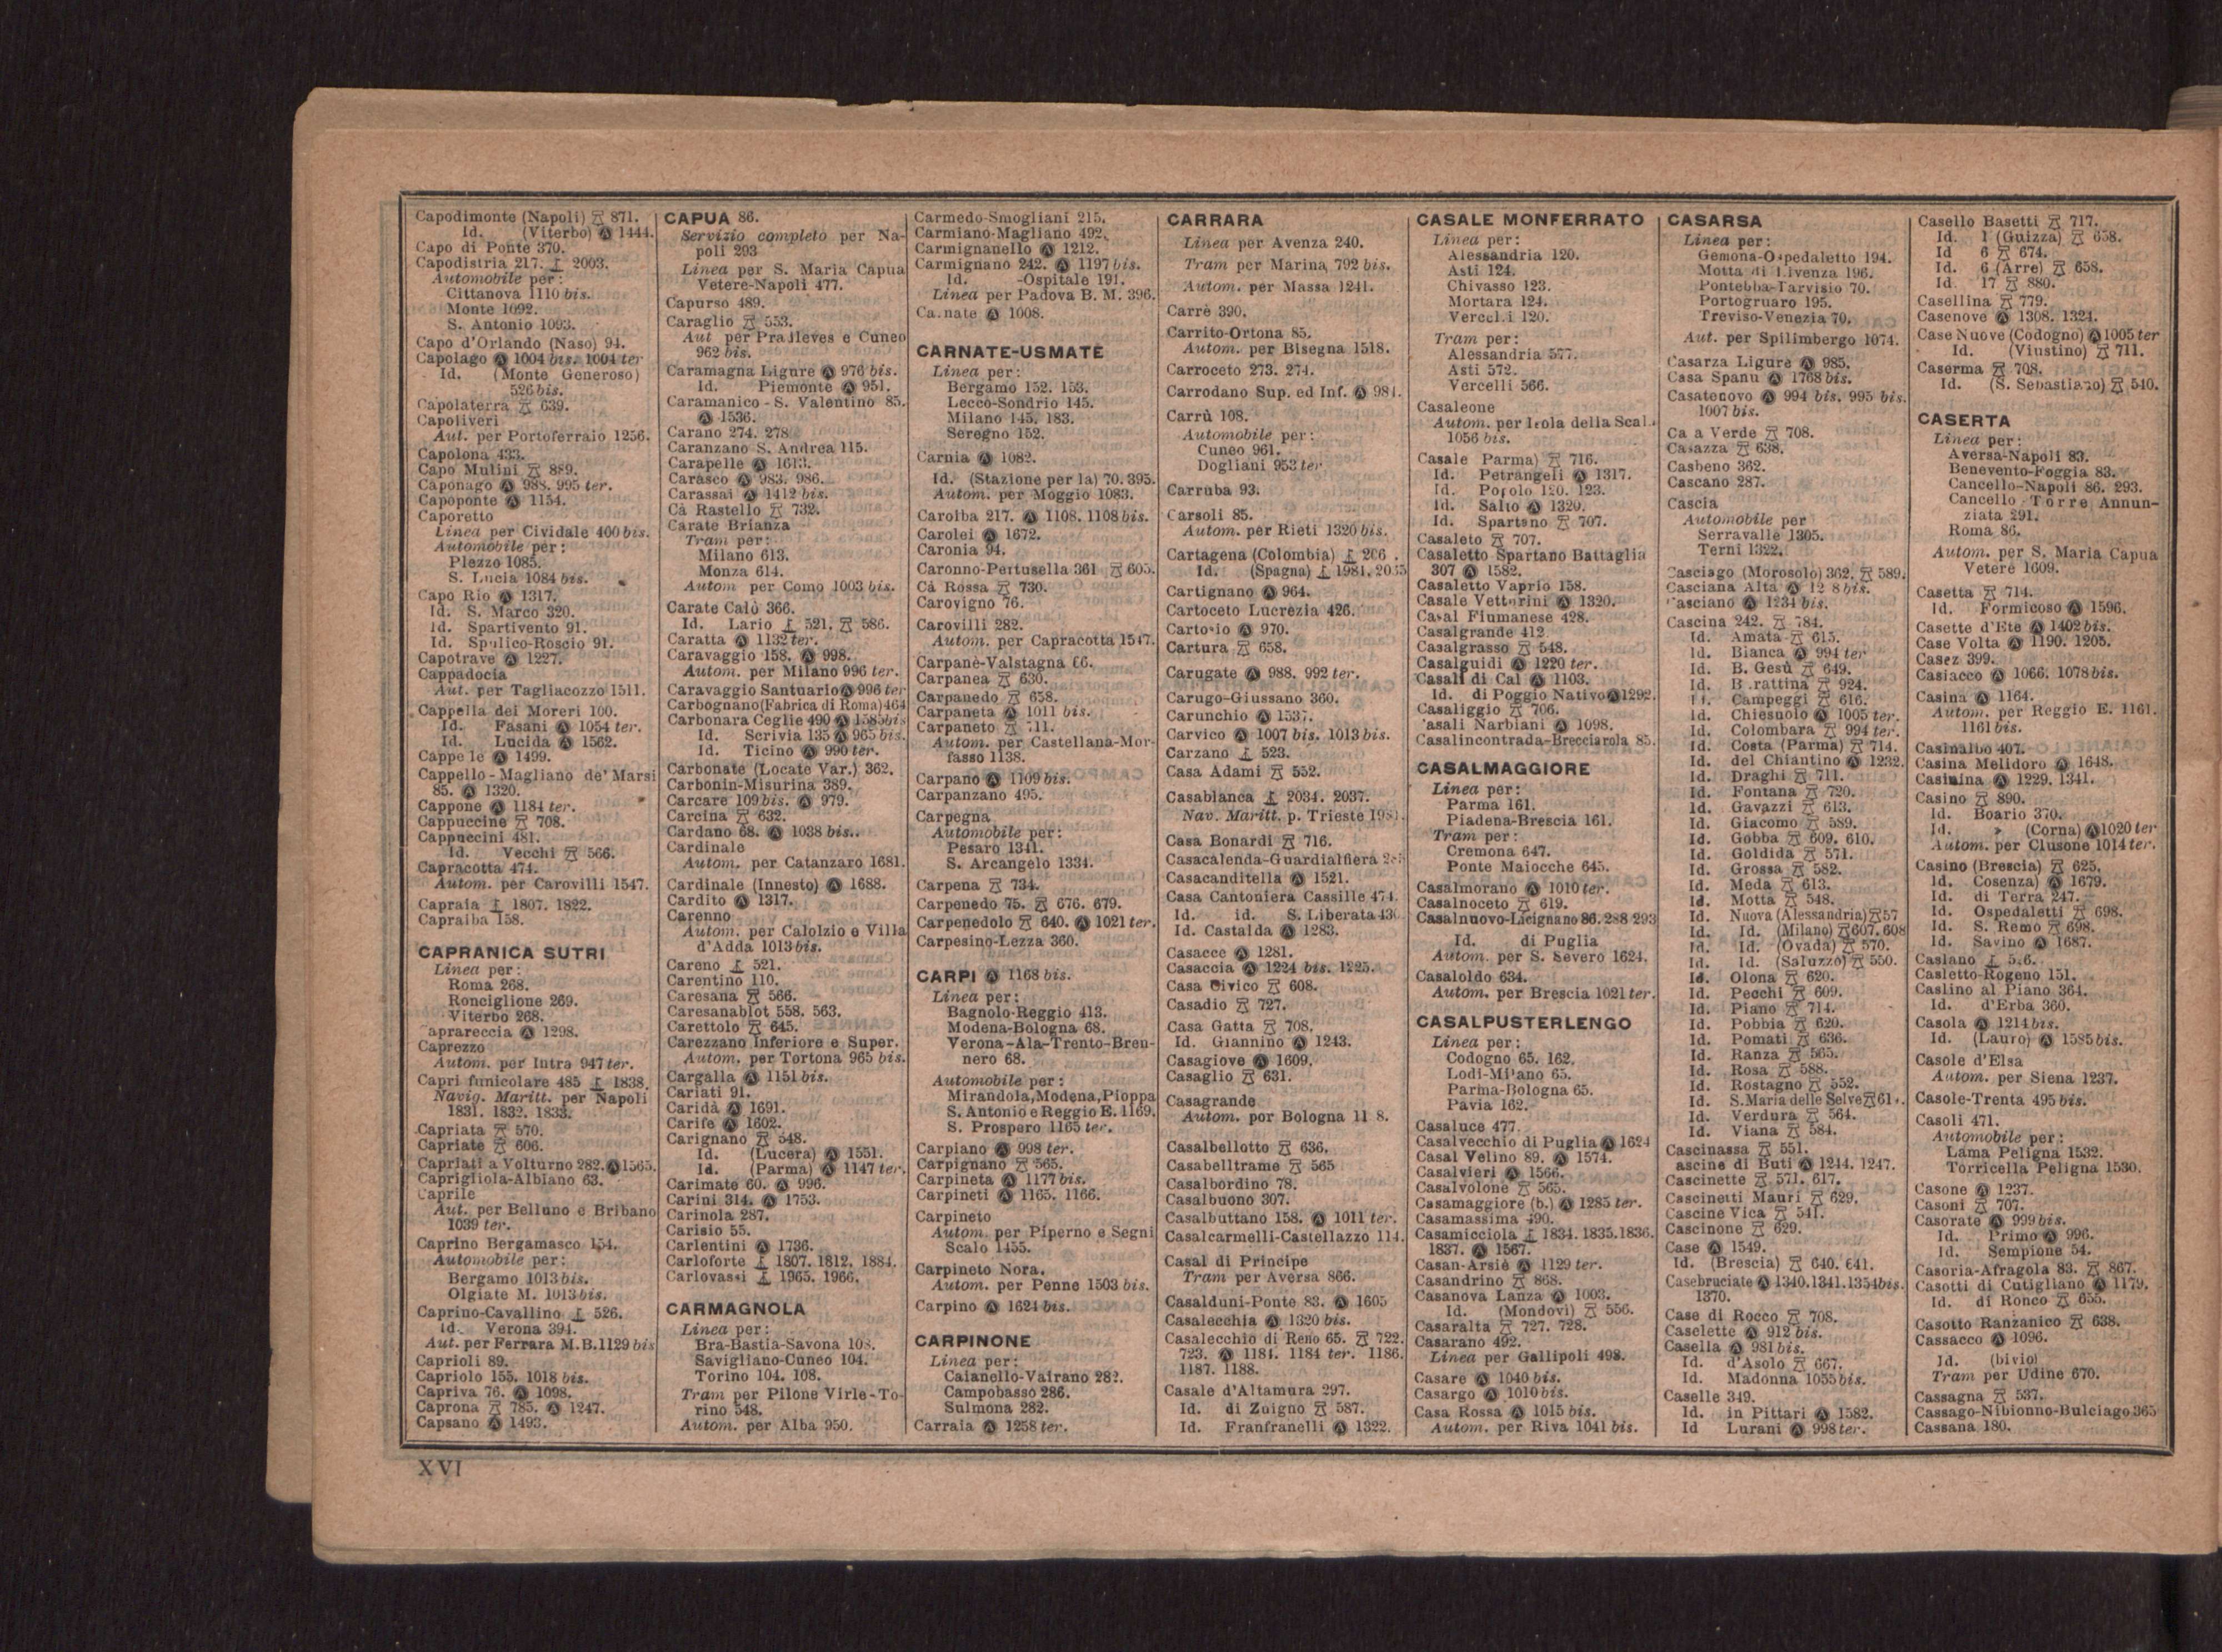 Capodimonte (Napoli) 871.
Id. (Viterbo) Ⓐ 1444.
Capo di Ponte 370.
Capodistria 217. 2003.
Automobile per:
Cittanova 1110 bis.
Monte 1092.
S. Antonio 1093.
Capo d'Orlando (Naso) 94.
Capolago Ⓐ 1004 bis. 1004 ter
Id. (Monte Generoso)
526 bis.
Capolaterra 639.
Capoliveri
Aut. per Portoferraio 1256.
Capolona 433.
Capo Mulini 889.
Caponago Ⓐ 988. 995 ter.
Capoponte Ⓐ 1154.
Caporetto
Linea per Cividale 400 bis.
Automobile per:
Plezzo 1085.
S. Lucia 1084 bis.
Capo Rio Ⓐ 1317.
Id. S. Marco 320.
Id. Spartivento 91.
Id. Spulico-Roscio 91.
Capotrave Ⓐ 1227.
Cappadocia
Aut. per Tagliacozzo 1511.
Cappella dei Moreri 100.
Id. Fasani Ⓐ 1054 ter.
Id. Lucida Ⓐ 1562.
Cappe le Ⓐ 1499.
Cappello-Magliano de' Marsi
85. Ⓐ 1320.
Cappone Ⓐ 1184 ter.
Cappuccine 708.
Cappuccini 481.
Id. Vecchi 566.
Capracotta 474.
Autom. per Carovilli 1547.
Capraia 1807. 1822.
Capralba 158.
CAPRANICA SUTRI
Linea per:
Roma 268.
Ronciglione 269.
Viterbo 268.
aprareccia Ⓐ 1298.
Caprezzo
Autom. per Intra 947 ter.
Capri funicolare 485 1838.
Navig. Maritt. per Napoli
1831. 1832. 1833.
Capriata 570.
Capriate 606.
Capriati a Volturno 282. Ⓐ 1565.
Caprigliola-Albiano 63.
Caprile
Aut. per Belluno e Bribano
1039 ter.
Caprino Bergamasco 154.
Automobile per:
Bergamo 1013 bis.
Olgiate M. 1013 bis.
Caprino-Cavallino 526.
Id. Verona 394.
Aut. per Ferrara M.B. 1129 bis
Caprioli 89.
Capriolo 155. 1018 bis.
Capriva 76. Ⓐ 1098.
Caprona 785. Ⓐ 1247.
Capsano Ⓐ 1493.
CAPUA 86.
Servizio completo per Na-
poli 293
Linea per S. Maria Capua
Vetere-Napoli 477.
Capurso 489.
Caraglio 553.
Aut per Pradleves e Cuneo
962 bis.
Caramagna Ligure Ⓐ 976 bis.
Id. Piemonte Ⓐ 951.
Caramanico-S. Valentino 85.
Ⓐ 1536.
Carano 274. 278
Caranzano S. Andrea 115.
Carapelle Ⓐ 1613.
Carasco Ⓐ 983. 986.
Carassai Ⓐ 1412 bis.
Cà Rastello 732.
Carate Brianza
Tram per:
Milano 613.
Monza 614.
Autom per Como 1003 bis.
Carate Calò 366.
Id. Lario 521. 586.
Caratta Ⓐ 1132 ter.
Caravaggio 158. Ⓐ 998.
Autom. per Milano 996 ter.
Caravaggio Santuario Ⓐ 996 ter
Carbognano (Fabrica di Roma) 464
Carbonara Ceglie 490 Ⓐ 1585 bis
Id. Scrivia 135 Ⓐ 965 bis.
Id. Ticino Ⓐ 990 ter.
Carbonate (Locate Var.) 362.
Carbonin-Misurina 389.
Carcare 109 bis. Ⓐ 979.
Carcina 632.
Cardano 68. Ⓐ 1038 bis..
Cardinale
Autom. per Catanzaro 1681.
Cardinale (Innesto) Ⓐ 1688.
Cardito Ⓐ 1317.
Carenno
Autom. per Calolzio e Villa
d'Adda 1013 bis.
Careno 521.
Carentino 110.
Caresana 566.
Caresanablot 558. 563.
Carettolo 645.
Carezzano Inferiore e Super.
Autom. per Tortona 965 bis.
Cargalla Ⓐ 1151 bis.
Cariati 91.
Caridà Ⓐ 1691.
Carife Ⓐ 1602.
Carignano 548.
Id. (Lucera) Ⓐ 1551.
Id. (Parma) Ⓐ 1147 ter.
Carimate 60. Ⓐ 996.
Carini 314. Ⓐ 1753.
Carinola 287.
Carisio 55.
Carlentini Ⓐ 1736.
Carloforte 1807. 1812. 1884.
Carlovassi 1965. 1966.
CARMAGNOLA
Linea per:
Bra-Bastia-Savona 108.
Savigliano-Cuneo 104.
Torino 104. 108.
Tram per Pilone Virle-To-
rino 548.
Autom. per Alba 950.
Carmedo-Smogliani 215.
Carmiano-Magliano 492.
Carmignanello Ⓐ 1212.
Carmignano 242. Ⓐ 1197 bis.
Id. -Ospitale 191.
Linea per Padova B. M. 396.
Ca.nate Ⓐ 1008.
CARNATE-USMATE
Linea per:
Bergamo 152. 153.
Lecco-Sondrio 145.
Milano 145. 183.
Seregno 152.
Carnia Ⓐ 1082.
Id. (Stazione per la) 70. 395.
Autom. per Moggio 1083.
Carolba 217. Ⓐ 1108. 1108 bis.
Carolei Ⓐ 1672.
Caronia 94.
Caronno-Pertusella 361 605.
Cà Rossa 730.
Carovigno 76.
Carovilli 282.
Autom. per Capracotta 1547.
Carpanè-Valstagna 66.
Carpanea 630.
Carpanedo 658.
Carpaneta Ⓐ 1011 bis.
Carpaneto 711.
Autom. per Castellana-Mor-
fasso 1138.
Carpano Ⓐ 1109 bis.
Carpanzano 495.
Carpegna
Automobile per:
Pesaro 1341.
S. Arcangelo 1334.
Carpena 734.
Carpenedo 75. 676. 679.
Carpenedolo 640. Ⓐ 1021 ter.
Carpesino-Lezza 360.
CARPI Ⓐ 1168 bis.
Linea per:
Bagnolo-Reggio 413.
Modena-Bologna 68.
Verona-Ala-Trento-Bren-
nero 68.
Automobile per:
Mirandola, Modena, Pioppa
S. Antonio e Reggio E. 1169.
S. Prospero 1165 ter.
Carpiano Ⓐ 998 ter.
Carpignano 565.
Carpineta Ⓐ 1177 bis.
Carpineti Ⓐ 1165. 1166.
Carpineto
Autom. per Piperno e Segni
Scalo 1455.
Carpineto Nora.
Autom. per Penne 1503 bis.
Carpino Ⓐ 1624 bis.
CARPINONE
Linea per:
Caianello-Vairano 282.
Campobasso 286.
Sulmona 282.
Carraia Ⓐ 1258 ter.
CARRARA
Linea per Avenza 240.
Tram per Marina 792 bis.
Autom. per Massa 1241.
Carrè 390.
Carrito-Ortona 85.
Autom. per Bisegna 1518.
Carroceto 273. 274.
Carrodano Sup. ed Inf. Ⓐ 984.
Carrù 108.
Automobile per:
Cuneo 961.
Dogliani 953 ter
Carruba 93.
Carsoli 85.
Autom. per Rieti 1320 bis.
Cartagena (Colombia) 206 .
Id. (Spagna) 1984. 2035
Cartignano Ⓐ 964.
Cartoceto Lucrezia 426.
Cartosio Ⓐ 970.
Cartura 658.
Carugate Ⓐ 988. 992 ter.
Carugo-Giussano 360.
Carunchio Ⓐ 1537.
Carvico Ⓐ 1007 bis. 1013 bis.
Carzano 523.
Casa Adami 552.
Casablanca 2034. 2037.
Nav. Maritt. p. Trieste
Casa Bonardi 716.
Casacalenda-Guardialfiera
Casacanditella Ⓐ 1521.
Casa Cantoniera Cassille 474
Id. id. S. Liberata
Id. Castalda Ⓐ 1283.
Casacce Ⓐ 1281.
Casaccia Ⓐ 1224 bis. 1225.
Casa Civico 608.
Casadio 727.
Casa Gatta 708.
Id. Giannino Ⓐ 1243.
Casagiove Ⓐ 1609.
Casaglio 631.
Casagrande
Autom. por Bologna 11 8.
Casalbellotto 636.
Casabelltrame 565
Casalbordino 78.
Casalbuono 307.
Casalbuttano 158. Ⓐ 1011 ter.
Casalcarmelli-Castellazzo 114.
Casal di Principe
Tram per Aversa 866.
Casalduni-Ponte 83. Ⓐ 1605
Casalecchia Ⓐ 1320 bis.
Casalecchio di Reno 65. 722.
723. Ⓐ 1184. 1184 ter. 1186.
1187. 1188.
Casale d'Altamura 297.
Id. di Zuigno 587.
Id. Franfranelli Ⓐ 1322.
CASALE MONFERRATO
Linea per:
Alessandria 120.
Asti 124.
Chivasso 123.
Mortara 124.
Vercelli 120.
Tram per:
Alessandria 577.
Asti 572.
Vercelli 566.
Casaleone
Autom. per Isola della Scal.
1056 bis.
Casale Parma) 716.
Id. Petrangeli Ⓐ 1317.
Id. Popolo 120. 123.
Id. Salto Ⓐ 1320.
Id. Spartano 707.
Casaleto 707.
Casaletto Spartano Battaglia
307 Ⓐ 1582.
Casaletto Vaprio 158.
Casale Vetturini Ⓐ 1320.
Casal Fiumanese 428.
Casalgrande 412
Casalgrasso 548.
Casalguidi Ⓐ 1220 ter.
Casali di Cal Ⓐ 1103.
Id. di Poggio Nativo Ⓐ 1292.
Casaliggio 706.
asali Narbiani Ⓐ 1098.
Casalincontrada-Brecciarola 85.
CASALMAGGIORE
Linea per:
Parma 161.
Piadena-Brescia 161.
Tram per:
Cremona 647.
Ponte Maiocche 645.
Casalmorano Ⓐ 1010 ter.
Casalnoceto 619.
Casalnuovo-Licignano 86. 288 293
Id. di Puglia
Autom. per S. Severo 1624.
Casaloldo 634.
Autom. per Brescia 1021 ter.
CASALPUSTERLENGO
Linea per:
Codogno 65. 162.
Lodi-Milano 65.
Parma-Bologna 65.
Pavia 162.
Casaluce 477.
Casalvecchio di Puglia Ⓐ 1624
Casal Velino 89. Ⓐ 1574.
Casalvieri Ⓐ 1566.
Casalvolone 565.
Casamaggiore (b.) Ⓐ 1285 ter.
Casamassima 490.
Casamicciola 1834. 1835. 1836.
1837. Ⓐ 1567.
Casan-Arsiè Ⓐ 1129 ter.
Casandrino 868.
Casanova Lanza Ⓐ 1003.
Id. (Mondovì) 556.
Casaralta 727. 728.
Casarano 492.
Linea per Gallipoli 498.
Casare Ⓐ 1040 bis.
Casargo Ⓐ 1010 bis.
Casa Rossa Ⓐ 1015 bis.
Autom. per Riva 1041 bis.
CASARSA
Linea per:
Gemona-Ospedaletto 194.
Motta di Livenza 196.
Pontebba-Tarvisio 70.
Portogruaro 195.
Treviso-Venezia 70.
Aut. per Spilimbergo 1074.
Casarza Ligure Ⓐ 985.
Casa Spanu Ⓐ 1768 bis.
Casatenovo Ⓐ 994 bis. 995 bis.
1007 bis.
Ca a Verde 708.
Casazza 638.
Casbeno 362.
Cascano 287.
Cascia
Automobile per
Serravalle 1305.
Terni 1322.
Casciago (Morosolo) 362. 589.
Casciana Alta Ⓐ 12 8 bis.
asciano Ⓐ 1234 bis.
Cascina 242. 784.
Id. Amata 615.
Id. Bianca Ⓐ 994 ter
Id. B. Gesù 649.
Id. B.rattina 924.
Id. Campeggi 616.
Id. Chiesuolo Ⓐ 1005 ter.
Id. Colombara Ⓐ 994 ter.
Id. Costa (Parma) 714.
Id. del Chiantino Ⓐ 1232.
Id. Draghi 711.
Id. Fontana 720.
Id. Gavazzi 613.
Id. Giacomo 589.
Id. Gobba 609. 610.
Id. Goldida 571.
Id. Grossa 582.
Id. Meda 613.
Id. Motta 548.
Id. Nuova (Alessandria) 57
Id. Id. (Milano) 607. 608
Id. Id. (Ovada) 570.
Id. Id. (Saluzzo) 550.
Id. Olona 620.
Id. Pecchi 609.
Id. Piano 714.
Id. Pobbia 620.
Id. Pomati 636.
Id. Ranza 565.
Id. Rosa 588.
Id. Rostagno 552.
Id. S. Maria delle Selve 61 .
Id. Verdura 564.
Id. Viana 584.
Cascinassa 551.
ascine di Buti Ⓐ 1244. 1247.
Cascinette 571. 617.
Cascinetti Mauri 629.
Cascine Vica 541.
Cascinone 629.
Case Ⓐ 1549.
Id. (Brescia) 640. 641.
Casebruciate Ⓐ 1340. 1341. 1354 bis.
1370.
Case di Rocco 708.
Caselette Ⓐ 912 bis.
Casella Ⓐ 981 bis.
Id. d'Asolo 667.
Id. Madonna 1055 bis.
Caselle 349.
Id. in Pittari Ⓐ 1582.
Id Lurani Ⓐ 998 ter.
Casello Basetti 717.
Id. 1 (Guizza) 658.
Id 6 674.
Id. 6 (Arre) 658.
Id. 17 880.
Casellina 779.
Casenove Ⓐ 1308. 1324.
Case Nuove (Codogno) Ⓐ 1005 ter
Id. (Viustino) 711.
Caserma 708.
Id. (S. Sebastiano) 540.
CASERTA
Linea per:
Aversa-Napoli 83.
Benevento-Foggia 83.
Cancello-Napoli 86. 293.
Cancello-Torre Annun-
ziata 291.
Roma 86.
Autom. per S. Maria Capua
Vetere 1609.
Casetta 714.
Id. Formicoso Ⓐ 1596.
Casette d'Ete Ⓐ 1402 bis.
Case Volta Ⓐ 1190. 1205.
Casez 399.
Casiacco Ⓐ 1066. 1078 bis.
Casina Ⓐ 1164.
Autom. per Reggio E. 1161.
1161 bis.
Casinalbo 407.
Casina Melidoro Ⓐ 1648.
Casinina Ⓐ 1229. 1341.
Casino 890.
Id. Boario 370.
Id. » (Corna) Ⓐ 1020 ter
Autom. per Clusone 1014 ter.
Casino (Brescia) 625.
Id. Cosenza) Ⓐ 1679.
Id. di Terra 247.
Id. Ospedaletti 698.
Id. S. Remo 698.
Id. Savino Ⓐ 1687.
Casiano 5.6.
Casletto-Rogeno 151.
Caslino al Piano 364.
Id. d'Erba 360.
Casola Ⓐ 1214 bis.
Id. (Lauro) Ⓐ 1585 bis.
Casole d'Elsa
Autom. per Siena 1237.
Casole-Trenta 495 bis.
Casoli 471.
Automobile per:
Lama Peligna 1532.
Torricella Peligna 1530.
Casone Ⓐ 1237.
Casoni 707.
Casorate Ⓐ 999 bis.
Id. Primo Ⓐ 996.
Id. Sempione 54.
Casoria-Afragola 83. 867.
Casotti di Cutigliano Ⓐ 1179.
Id. di Ronco 655.
Casotto Ranzanico 638.
Cassacco Ⓐ 1096.
Id. (bivio)
Tram per Udine 670.
Cassagna 537.
Cassago-Nibionno-Bulciago 365
Cassana 180.
XVI